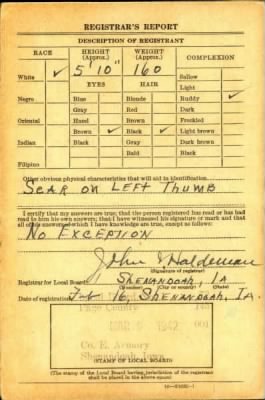 REGISTRAR'S REPORT
DESCRIPTION OF REGISTRANT
RACE HEIGHT (Approx.) WEIGHT (Approx.) COMPLEXION
White ✓ 5' 10" 160 Sallow
EYES HAIR Light
Negro Blue Blonde Ruddy ✓
Gray Red Dark
Oriental Hazel Black Freckled
Brown ✓ Brown ✓ Light brown
Indian Black Gray Dark brown
Bald Black
Filipino
Other obvious physical characteristics that will aid in identification
SCAR ON LEFT THUMB
I certify that my answers are true; that the person registered has read or has had
read to him his own answers; that I have witnessed his signature or mark and that
all of his answers of which I have knowledge are true, except as follows:
NO EXCEPTION
John Haldeman
(Signature of registrar)
Registrar for Local Board SHENANDOAH, IA
(Number) (City or county) (State)
Date of registration Feb 16, SHENANDOAH, IA.
Page County
1942 001
Co. E. Armory
Shenandoah, Iowa
(STAMP OF LOCAL BOARD)
(The stamp of the Local Board having jurisdiction of the registrant
shall be placed in the above space.)